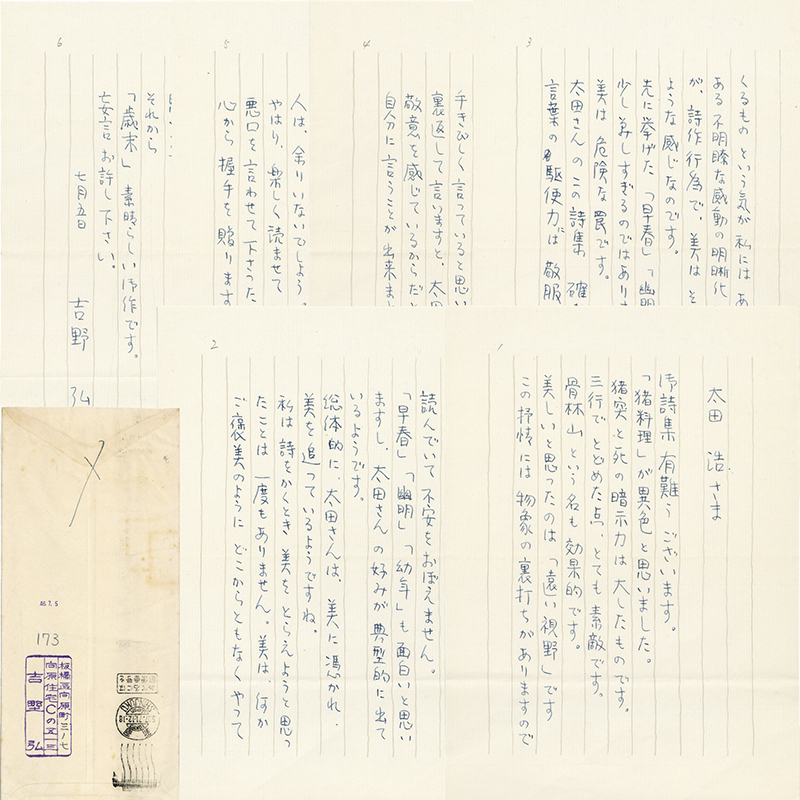 1
太田 浩さま
御詩集有難うございます。
「猪料理」が異色と思いました。
猪突と死の暗示力は大したものです。
三行でとどめた点、とても素敵です。
骨林山という名も効果的です。
美しいと思ったのは「遠い視野」です
この抒情には物象の裏打ちがありますので
2
読んでいて不安をおぼえません。
「早春」「幽明」「幼年」も面白いと思い
ますし、太田さんの好みが典型的に出て
いるようです。
総体的に、太田さんは、美に憑かれ、
美を追っているようですね。
私は詩をかくとき美をとらえようと思っ
たことは一度もありません。美は、何か
ご褒美のようにどこからともなくやって
3
くるものという気が私にはあ
ある不明瞭な感動の明晰化
が、詩作行為で、美はそ
ような感じなのです。
先に挙げた「早春」「幽明
少し美しすぎるのではあり
美は危険な罠です。
太田さんのこの詩集 確
言葉の駆使力は敬服
4
手きびしく言っていると思い
裏返して言いますと、太田
敬意を感じているからだと
自分に言うことが出来まし
5
人は、余りいないでしょう。
やはり、楽しく読ませて
悪口を言わせて下さった
心から握手を贈ります
6
それから
「歳末」素晴らしい御作です。
妄言お許し下さい。
七月五日
吉野 弘
173
板橋区向原町三ノ七
向原住宅Cの五三
吉野弘